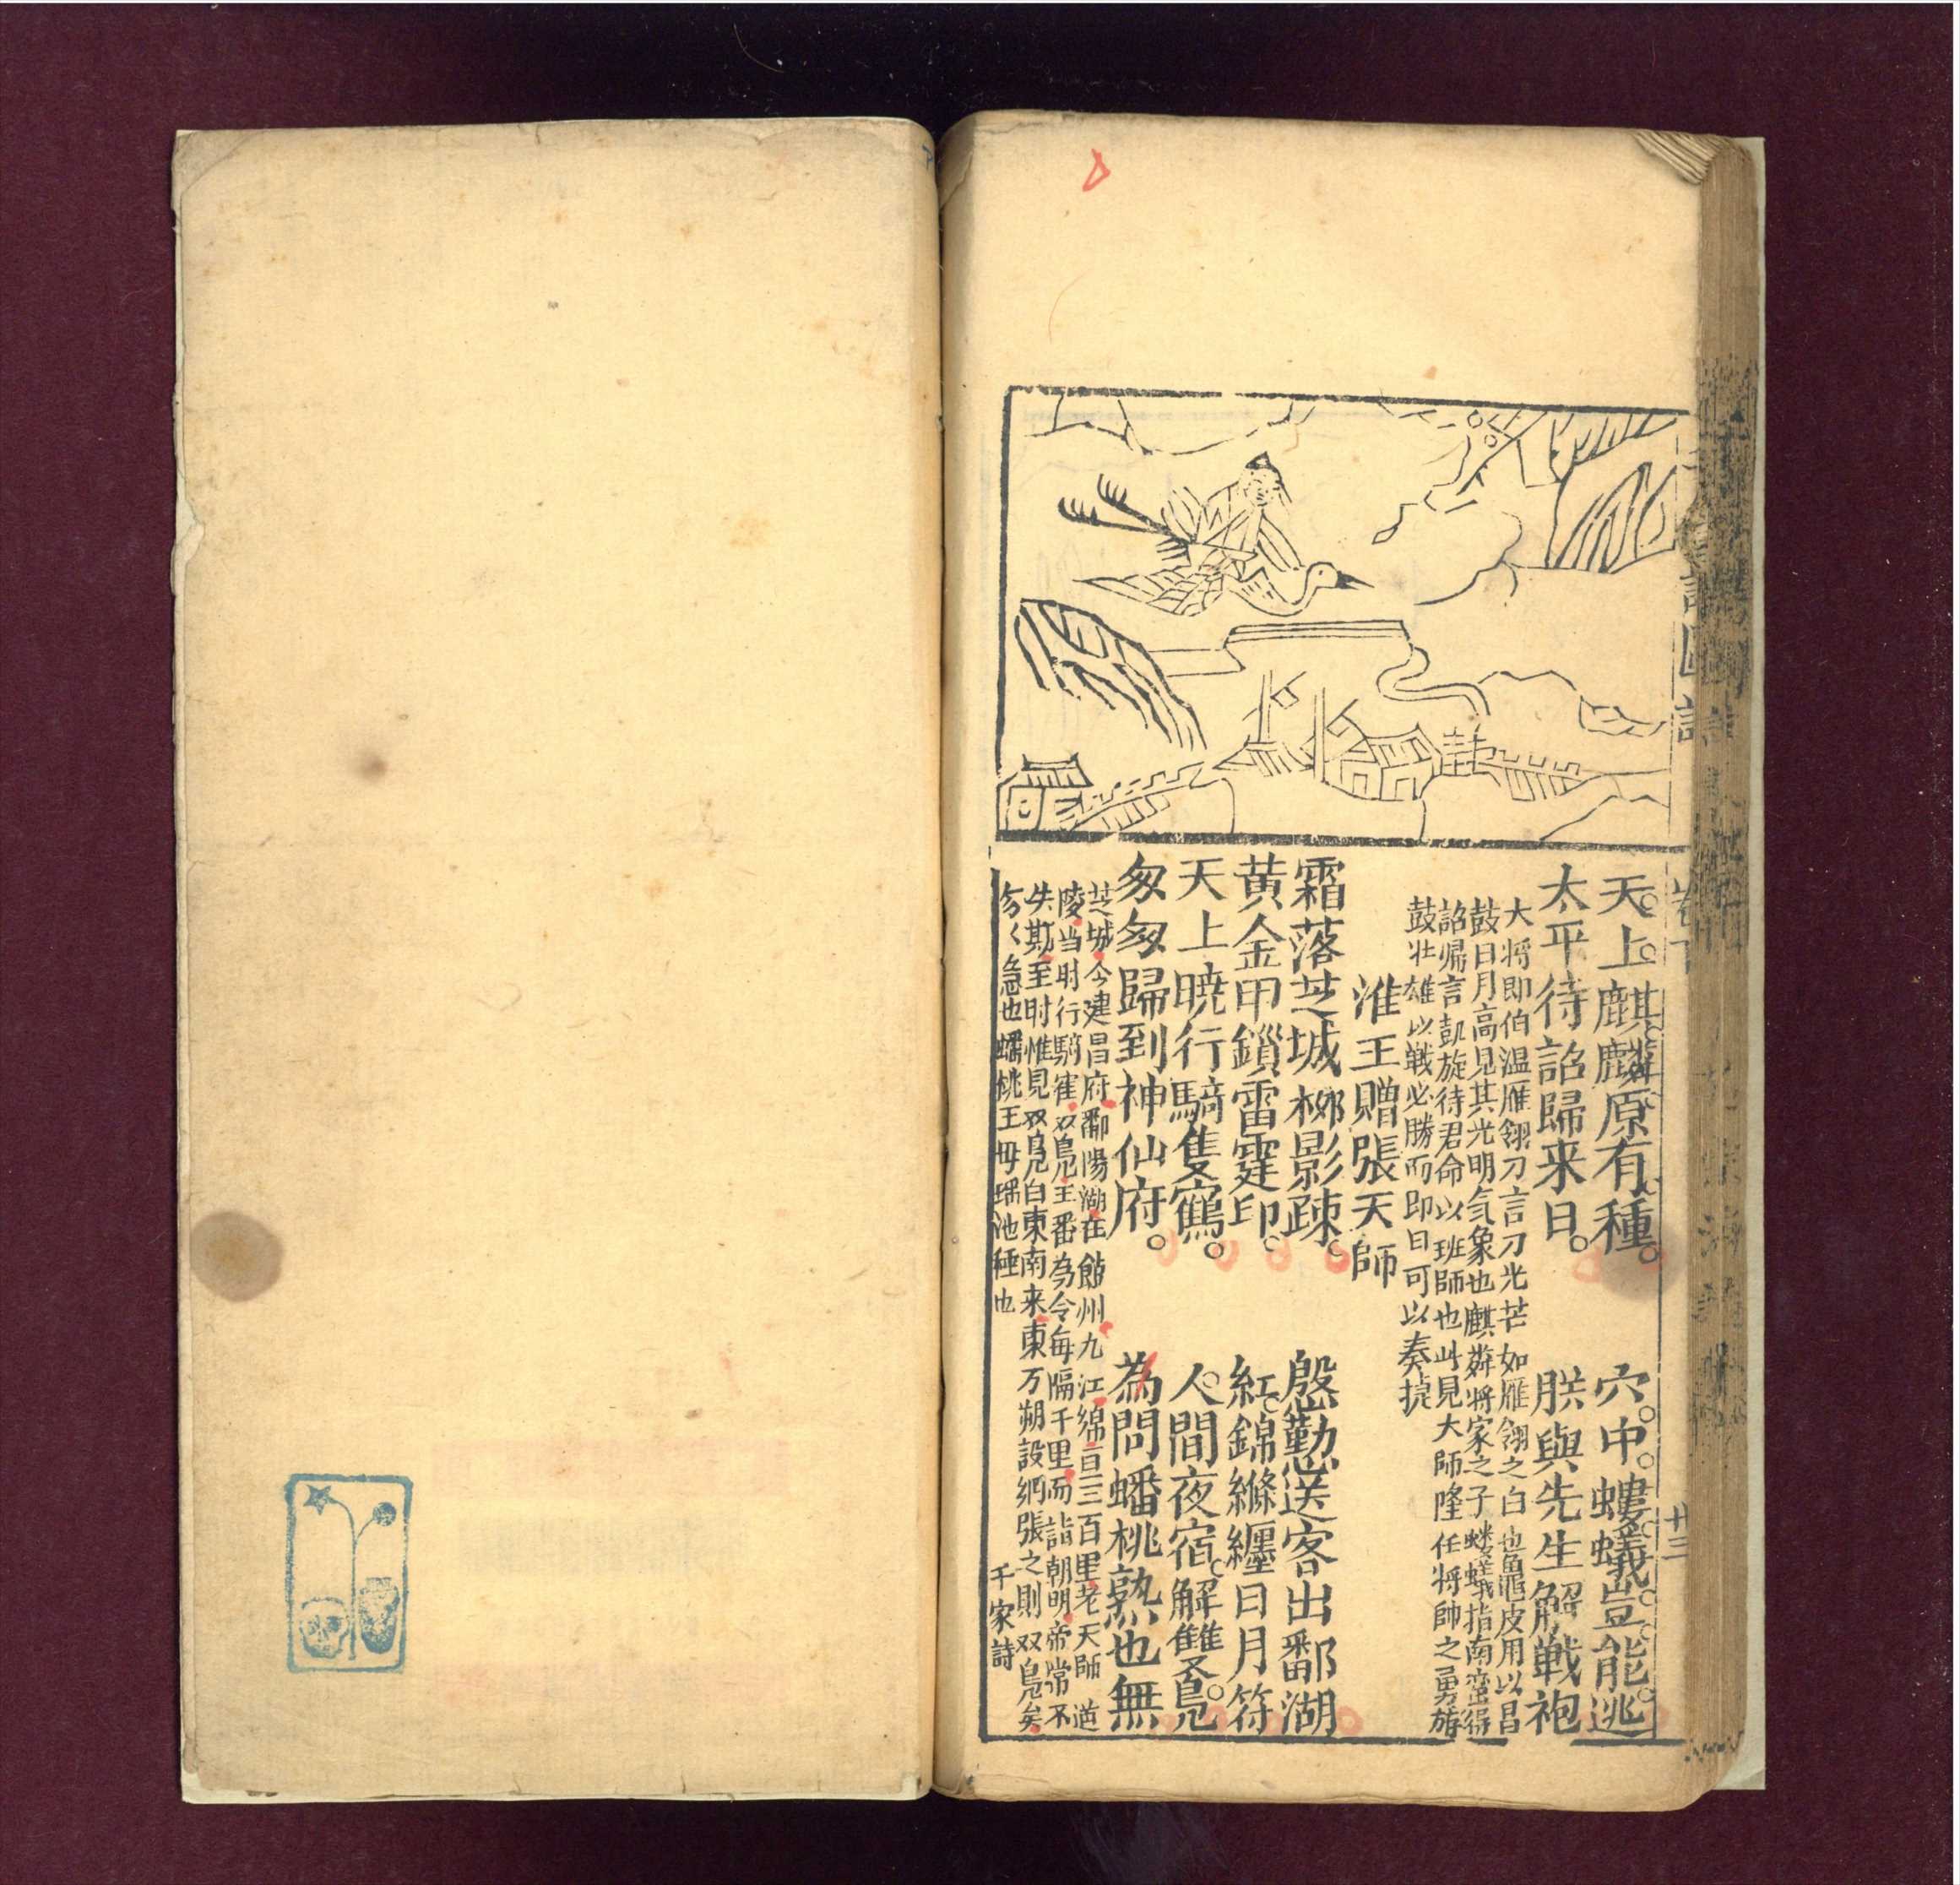 天上麒麟原有種。穴中螻蟻豈能逃
太平待詔歸来日。朕與先生解戰袍
大將即伯温雁翎刀言刀光芒如雁翎之白也鼍皮用以昌
鼓日月高見其光明气象也麒麟將家之子螻蟻指南蛮得
詔帰言凱旋待君命以班師也此見大師隆任將帥之勇
鼓壮雄以戦必勝而即日可以奏
淮王贈張天師
霜落芝城柳影踈。慇懃送客出鄱湖
黄金甲鎖雷霆印。紅錦縧纒日月符
天上暁行騎隻鶴。人間夜宿解雙鳧
匆匆歸到神仙府。為問蟠桃熟也無
芝城今建昌府鄱陽湖在饒州九江綿亘三百里老天師道
陵当时行騎隺双鳧王番为令每隔千里而詣朝明帝常不
失期至时惟見双鳧自東南来東方朔設網張之則双鳧矣
匆〻急也蟠桃王毋瑶池種也
千家詩
卷下
廿三